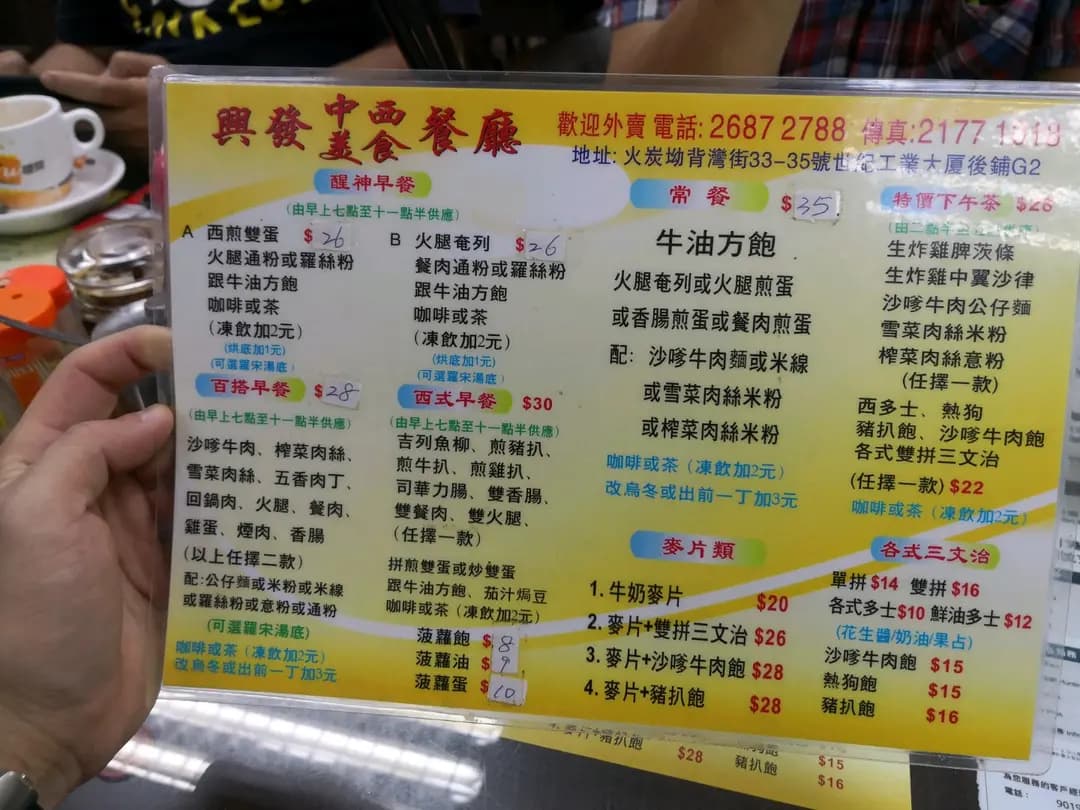 興發 中西美食 餐廳
歡迎外賣 電話: 2687 2788 傳真:2177 1018
地址: 火炭坳背灣街33-35號世紀工業大厦後鋪G2
醒神早餐
(由早上七點至十一點半供應)
A 西煎雙蛋 $26
火腿通粉或羅絲粉
跟牛油方飽
咖啡或茶
(凍飲加2元)
(烘底加1元)
(可選羅宋湯底)
B 火腿奄列 $26
餐肉通粉或羅絲粉
跟牛油方飽
咖啡或茶
(凍飲加2元)
(烘底加1元)
(可選羅宋湯底)
百搭早餐 $28
(由早上七點至十一點半供應)
沙嗲牛肉、榨菜肉絲、
雪菜肉絲、五香肉丁、
回鍋肉、火腿、餐肉、
雞蛋、煙肉、香腸
(以上任擇二款)
配:公仔麵或米粉或米線
或羅絲粉或意粉或通粉
(可選羅宋湯底)
咖啡或茶(凍飲加2元)
改烏冬或出前一丁加3元
西式早餐 $30
(由早上七點至十一點半供應)
吉列魚柳、煎豬扒、
煎牛扒、煎雞扒、
司華力腸、雙香腸、
雙餐肉、雙火腿、
(任擇一款)
拼煎雙蛋或炒雙蛋
跟牛油方飽、茄汁焗豆
咖啡或茶(凍飲加2元)
菠蘿飽 $8
菠蘿油 $9
菠蘿蛋 $10
常餐 $35
牛油方飽
火腿奄列或火腿煎蛋
或香腸煎蛋或餐肉煎蛋
配: 沙嗲牛肉麵或米線
或雪菜肉絲米粉
或榨菜肉絲米粉
咖啡或茶(凍飲加2元)
改烏冬或出前一丁加3元
麥片類
1. 牛奶麥片 $20
2. 麥片+雙拼三文治 $26
3. 麥片+沙嗲牛肉飽 $28
4. 麥片+豬扒飽 $28
特價下午茶 $26
(由二點半
生炸雞脾茨條
生炸雞中翼沙律
沙嗲牛肉公仔麵
雪菜肉絲米粉
榨菜肉絲意粉
(任擇一款)
西多士、熱狗
豬扒飽、沙嗲牛肉飽
各式雙拼三文治
(任擇一款) $22
咖啡或茶(凍飲加2元)
各式三文治
單拼 $14 雙拼 $16
各式多士 $10 鮮油多士 $12
(花生醬/奶油/果占)
沙嗲牛肉飽 $15
熱狗飽 $15
豬扒飽 $16
豬扒飽 $28
$15
豬扒飽 $16
為您服務的客戶經
電話: